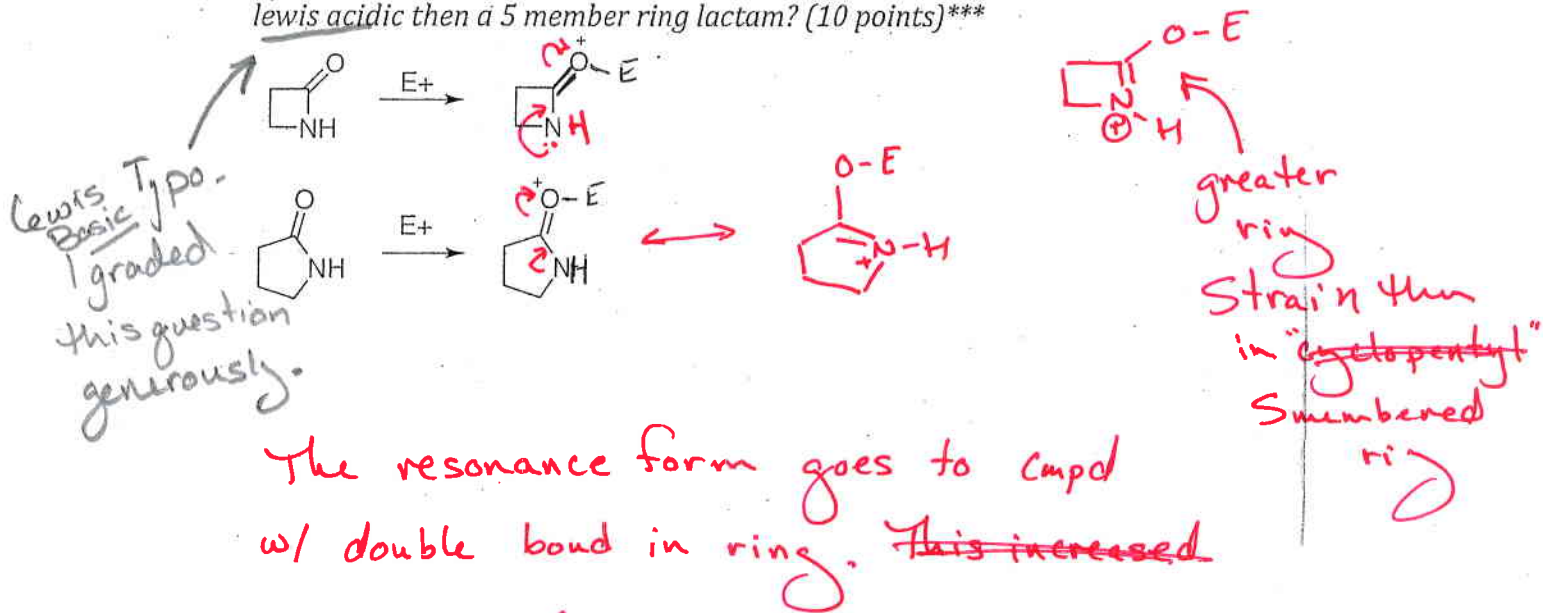 lewis acidic then a 5 member ring lactam? (10 points)***
O
NH
E+
+
O-E
N H
O-E
N
+
H
Lewis Basic
Typo.
I graded
this question
generously.
O
NH
E+
+
O-E
NH
O-E
N-H
+
greater
ring
Strain then
in "cyclopentyl"
5 membered
ring
The resonance form goes to cmpd
w/ double bond in ring. This increased